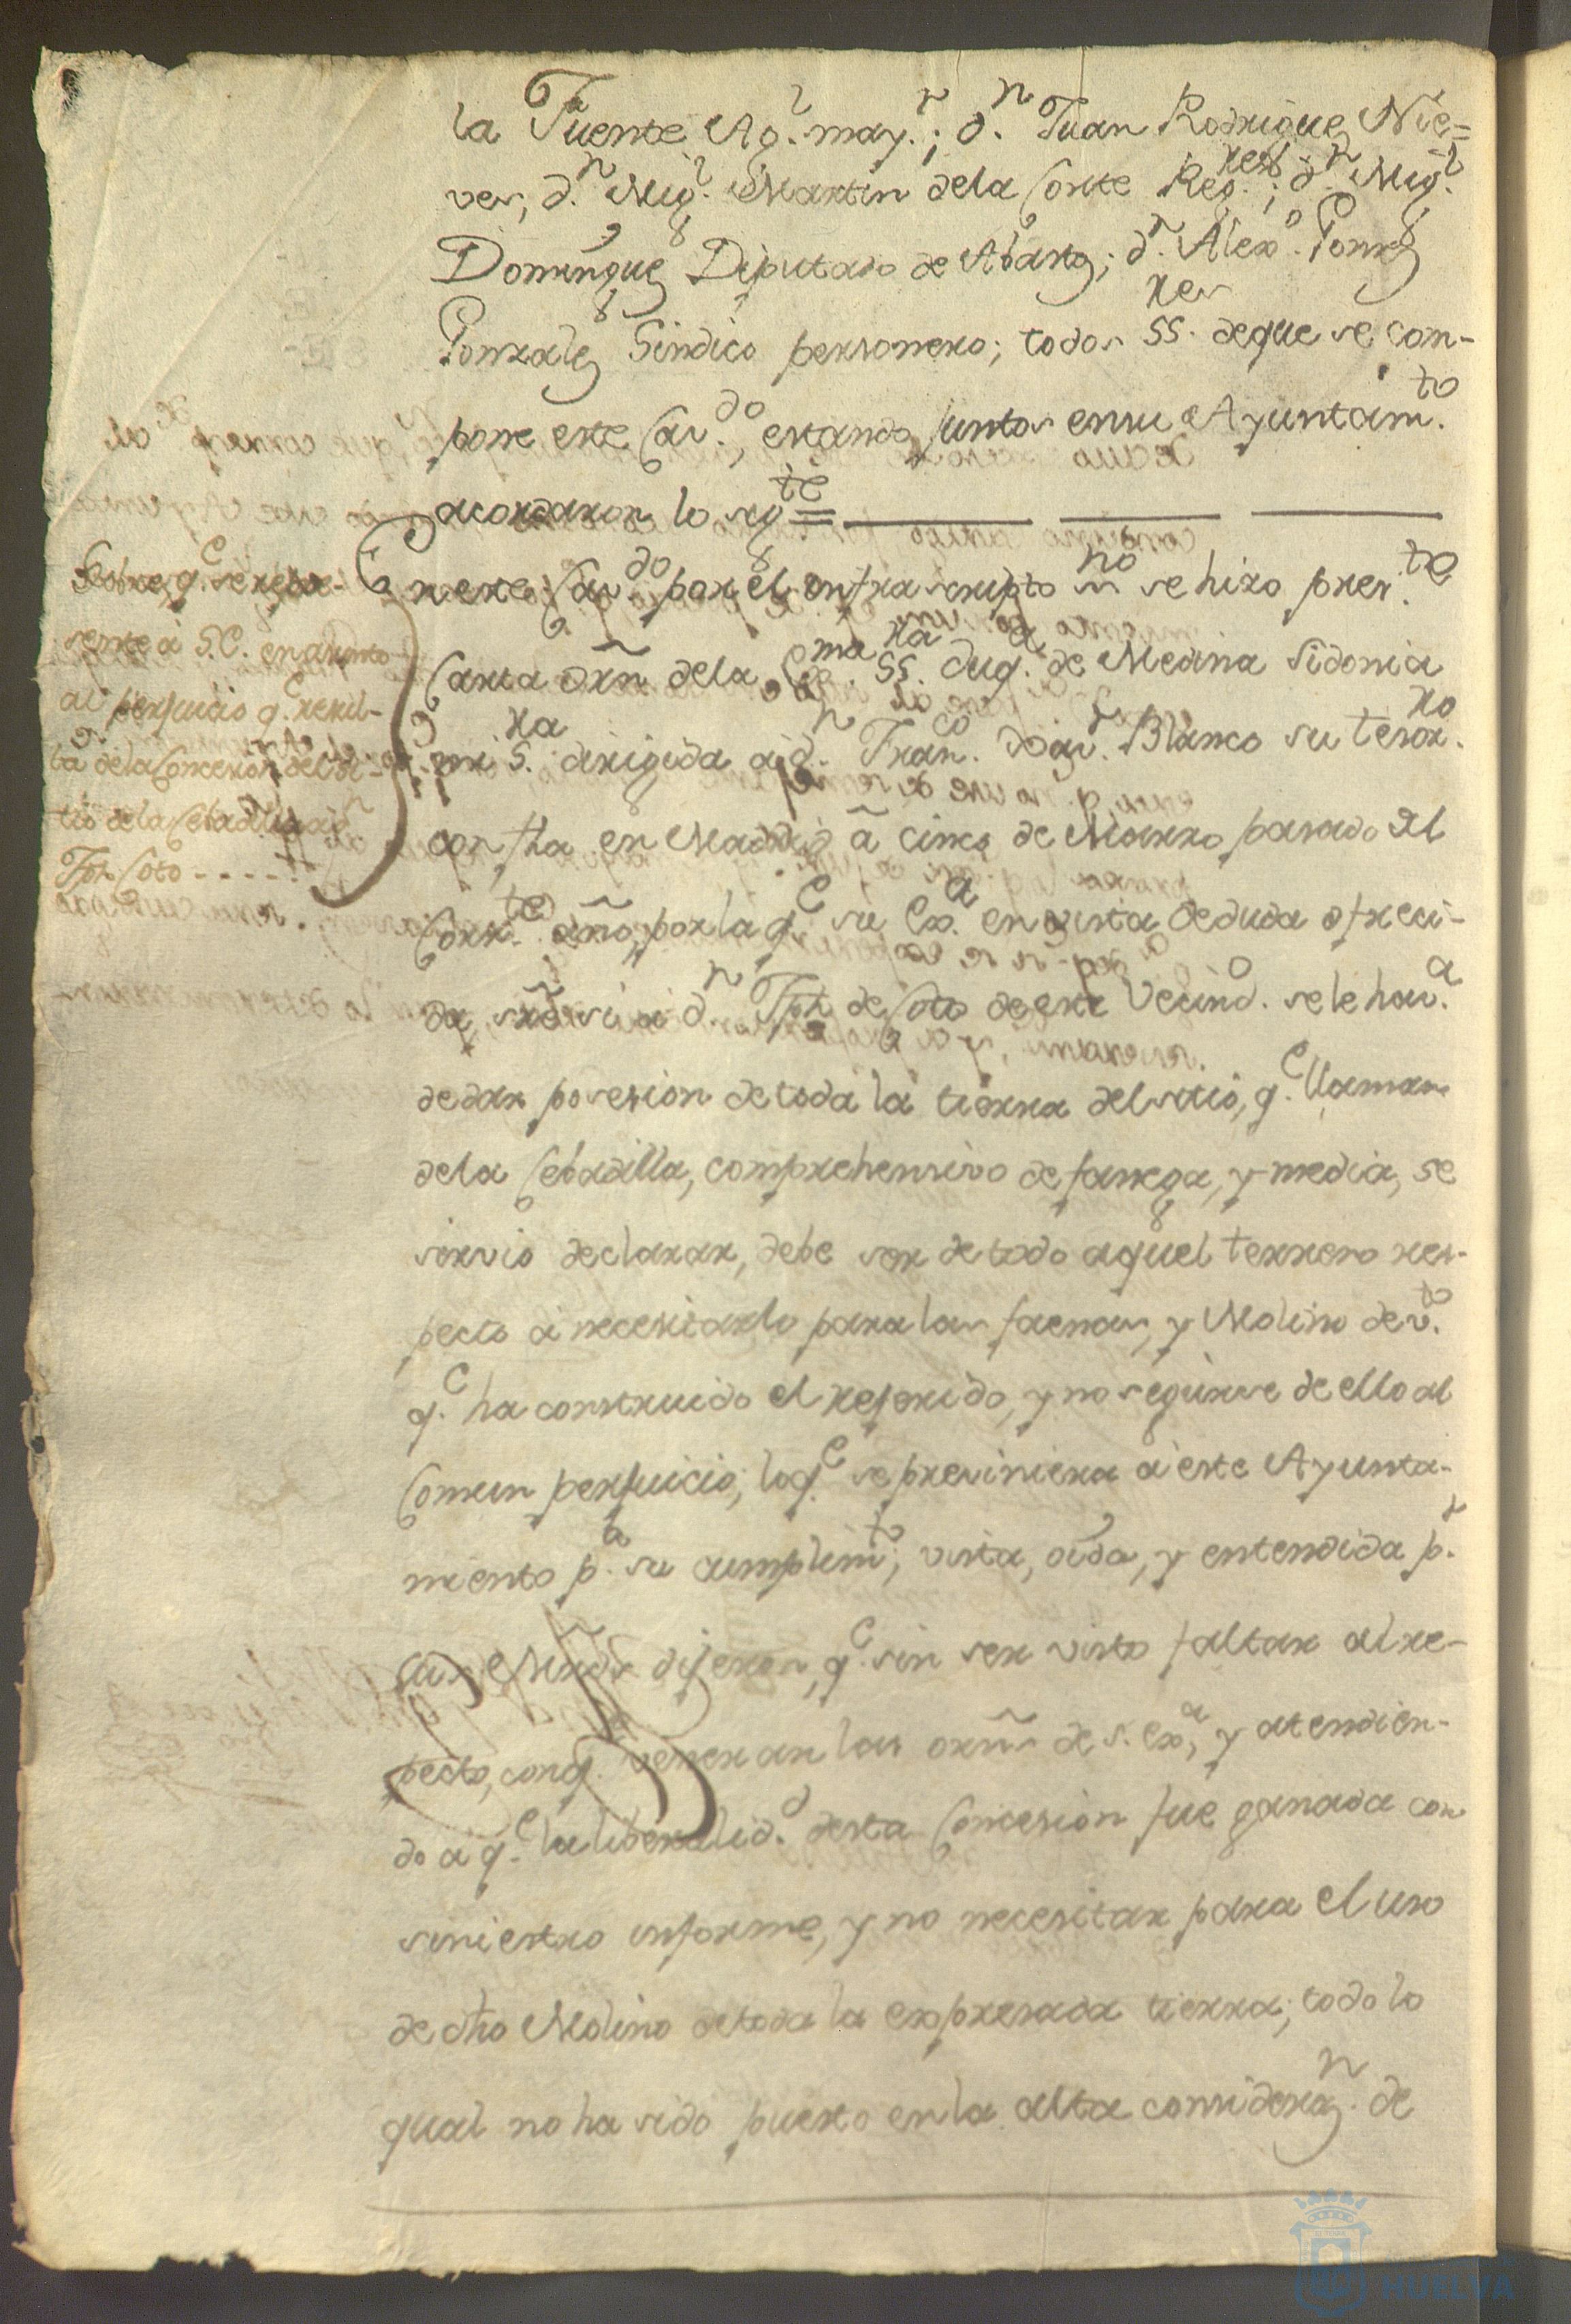 la Fuente Ag.l may.r; d.n Juan Rodriguez Nie=
ves, d.n Mig.l Martin dela Corte Reg.res; d.n Mig.l
Dominguez Diputado de Abastos; d.n Alex.o Pomez
Gonzalez Sindico personero; todos SS.res deque se com-
pone este Cav.do, estando juntos ensu Ayuntam.to
acordaron lo sig.te =
Sobre q.e se repre-
sente à S.E. en asunto
al perjuicio q.e resul-
ta dela Concesion del si-
tio dela Cebadilla a d.n
Jph Soto - - - - -
En este Cav.do por el infrascripto ss.no se hizo pres.te
Carta orñ dela Ex.ma SS.ra Duq.a de Medina Sidonia
mi S.ra dirigida a d.n Fran.co Xav.r Blanco su tesor.ro
con fha en Madrid à cinco de Marzo pasado del
Corr.te año, por la q.e su Ex.a en vista deduda ofreci-
da sr̃e si a d.n Jph de Soto de este Vecind.o se le hav.a
de dar posesion de toda la tierra del sitio, q.e llaman
dela Cebadilla, comprehensivo de fanega, y media, se
sirvio declarar, debe ser de todo aquel terreno res-
pecto à necesitarlo para las faenas, y Molino de v.to
q.e ha construido el referido, y no seguirse de ello al
Comun perjuicio; loq.e se previniera à este Ayunta-
miento p.a su cumplim.to; vista, oida, y entendida p.r
sus Mrds dijeron, q.e sin ser visto faltar al res-
pecto, conq.e veneran las orñs de S. Ex.a, y atendien-
do a q.e la liberalid.d desta Concesion fue ganada con
siniestro informe, y no necesitar para el uso
de dho Molino detoda la expresada tierra; todo lo
qual no ha sido puesto en la alta consideraz.n de
HUELVA